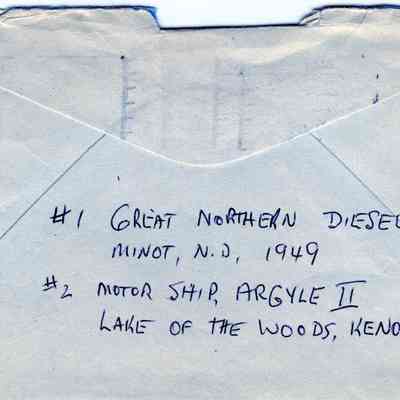 #1 GREAT NORTHERN DIESEL
MINOT, N.D, 1949
#2 MOTOR SHIP, ARGYLE II
LAKE OF THE WOODS, KENO